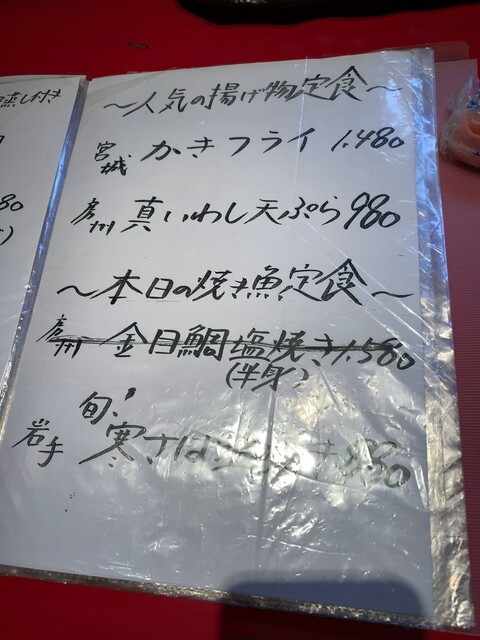 蒸し付き
～人気の揚げ物定食～
宮城 かきフライ 1,480
房州 真いわし天ぷら 980
～本日の焼き魚定食～
房州 金目鯛塩焼き 1,580
(半身)
旬！
岩手 寒さば